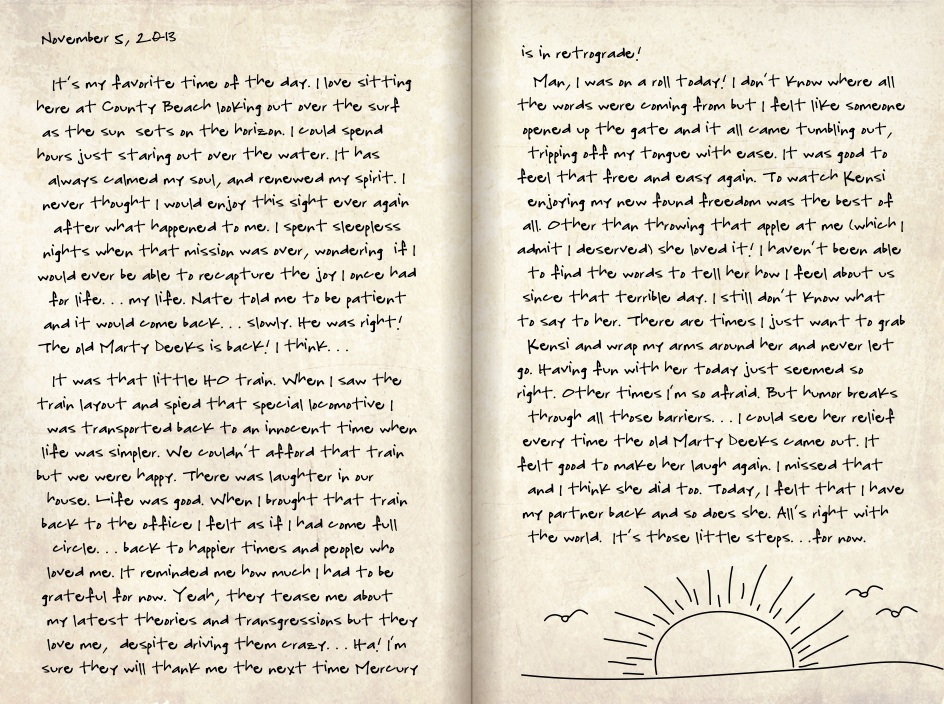 November 5, 2013
It's my favorite time of the day. I love sitting
here at County Beach looking out over the surf
as the sun sets on the horizon. I could spend
hours just staring out over the water. It has
always calmed my soul, and renewed my spirit. I
never thought I would enjoy this sight ever again
after what happened to me. I spent sleepless
nights when that mission was over, wondering if I
would ever be able to recapture the joy I once had
for life. . . my life. Nate told me to be patient
and it would come back. . . slowly. He was right!
The old Marty Deeks is back! I think. . .
It was that little HO train. When I saw the
train layout and spied that special locomotive I
was transported back to an innocent time when
life was simpler. We couldn't afford that train
but we were happy. There was laughter in our
house. Life was good. When I brought that train
back to the office I felt as if I had come full
circle. . . back to happier times and people who
loved me. It reminded me how much I had to be
grateful for now. Yeah, they tease me about
my latest theories and transgressions but they
love me, despite driving them crazy. . . Ha! I'm
sure they will thank me the next time Mercury
is in retrograde!
Man, I was on a roll today! I don't know where all
the words were coming from but I felt like someone
opened up the gate and it all came tumbling out,
tripping off my tongue with ease. It was good to
feel that free and easy again. To watch Kensi
enjoying my new found freedom was the best of
all. Other than throwing that apple at me (which I
admit I deserved) she loved it! I haven't been able
to find the words to tell her how I feel about us
since that terrible day. I still don't know what
to say to her. There are times I just want to grab
Kensi and wrap my arms around her and never let
go. Having fun with her today just seemed so
right. Other times I'm so afraid. But humor breaks
through all those barriers. . . I could see her relief
every time the old Marty Deeks came out. It
felt good to make her laugh again. I missed that
and I think she did too. Today, I felt that I have
my partner back and so does she. All's right with
the world. It's those little steps. . .for now.